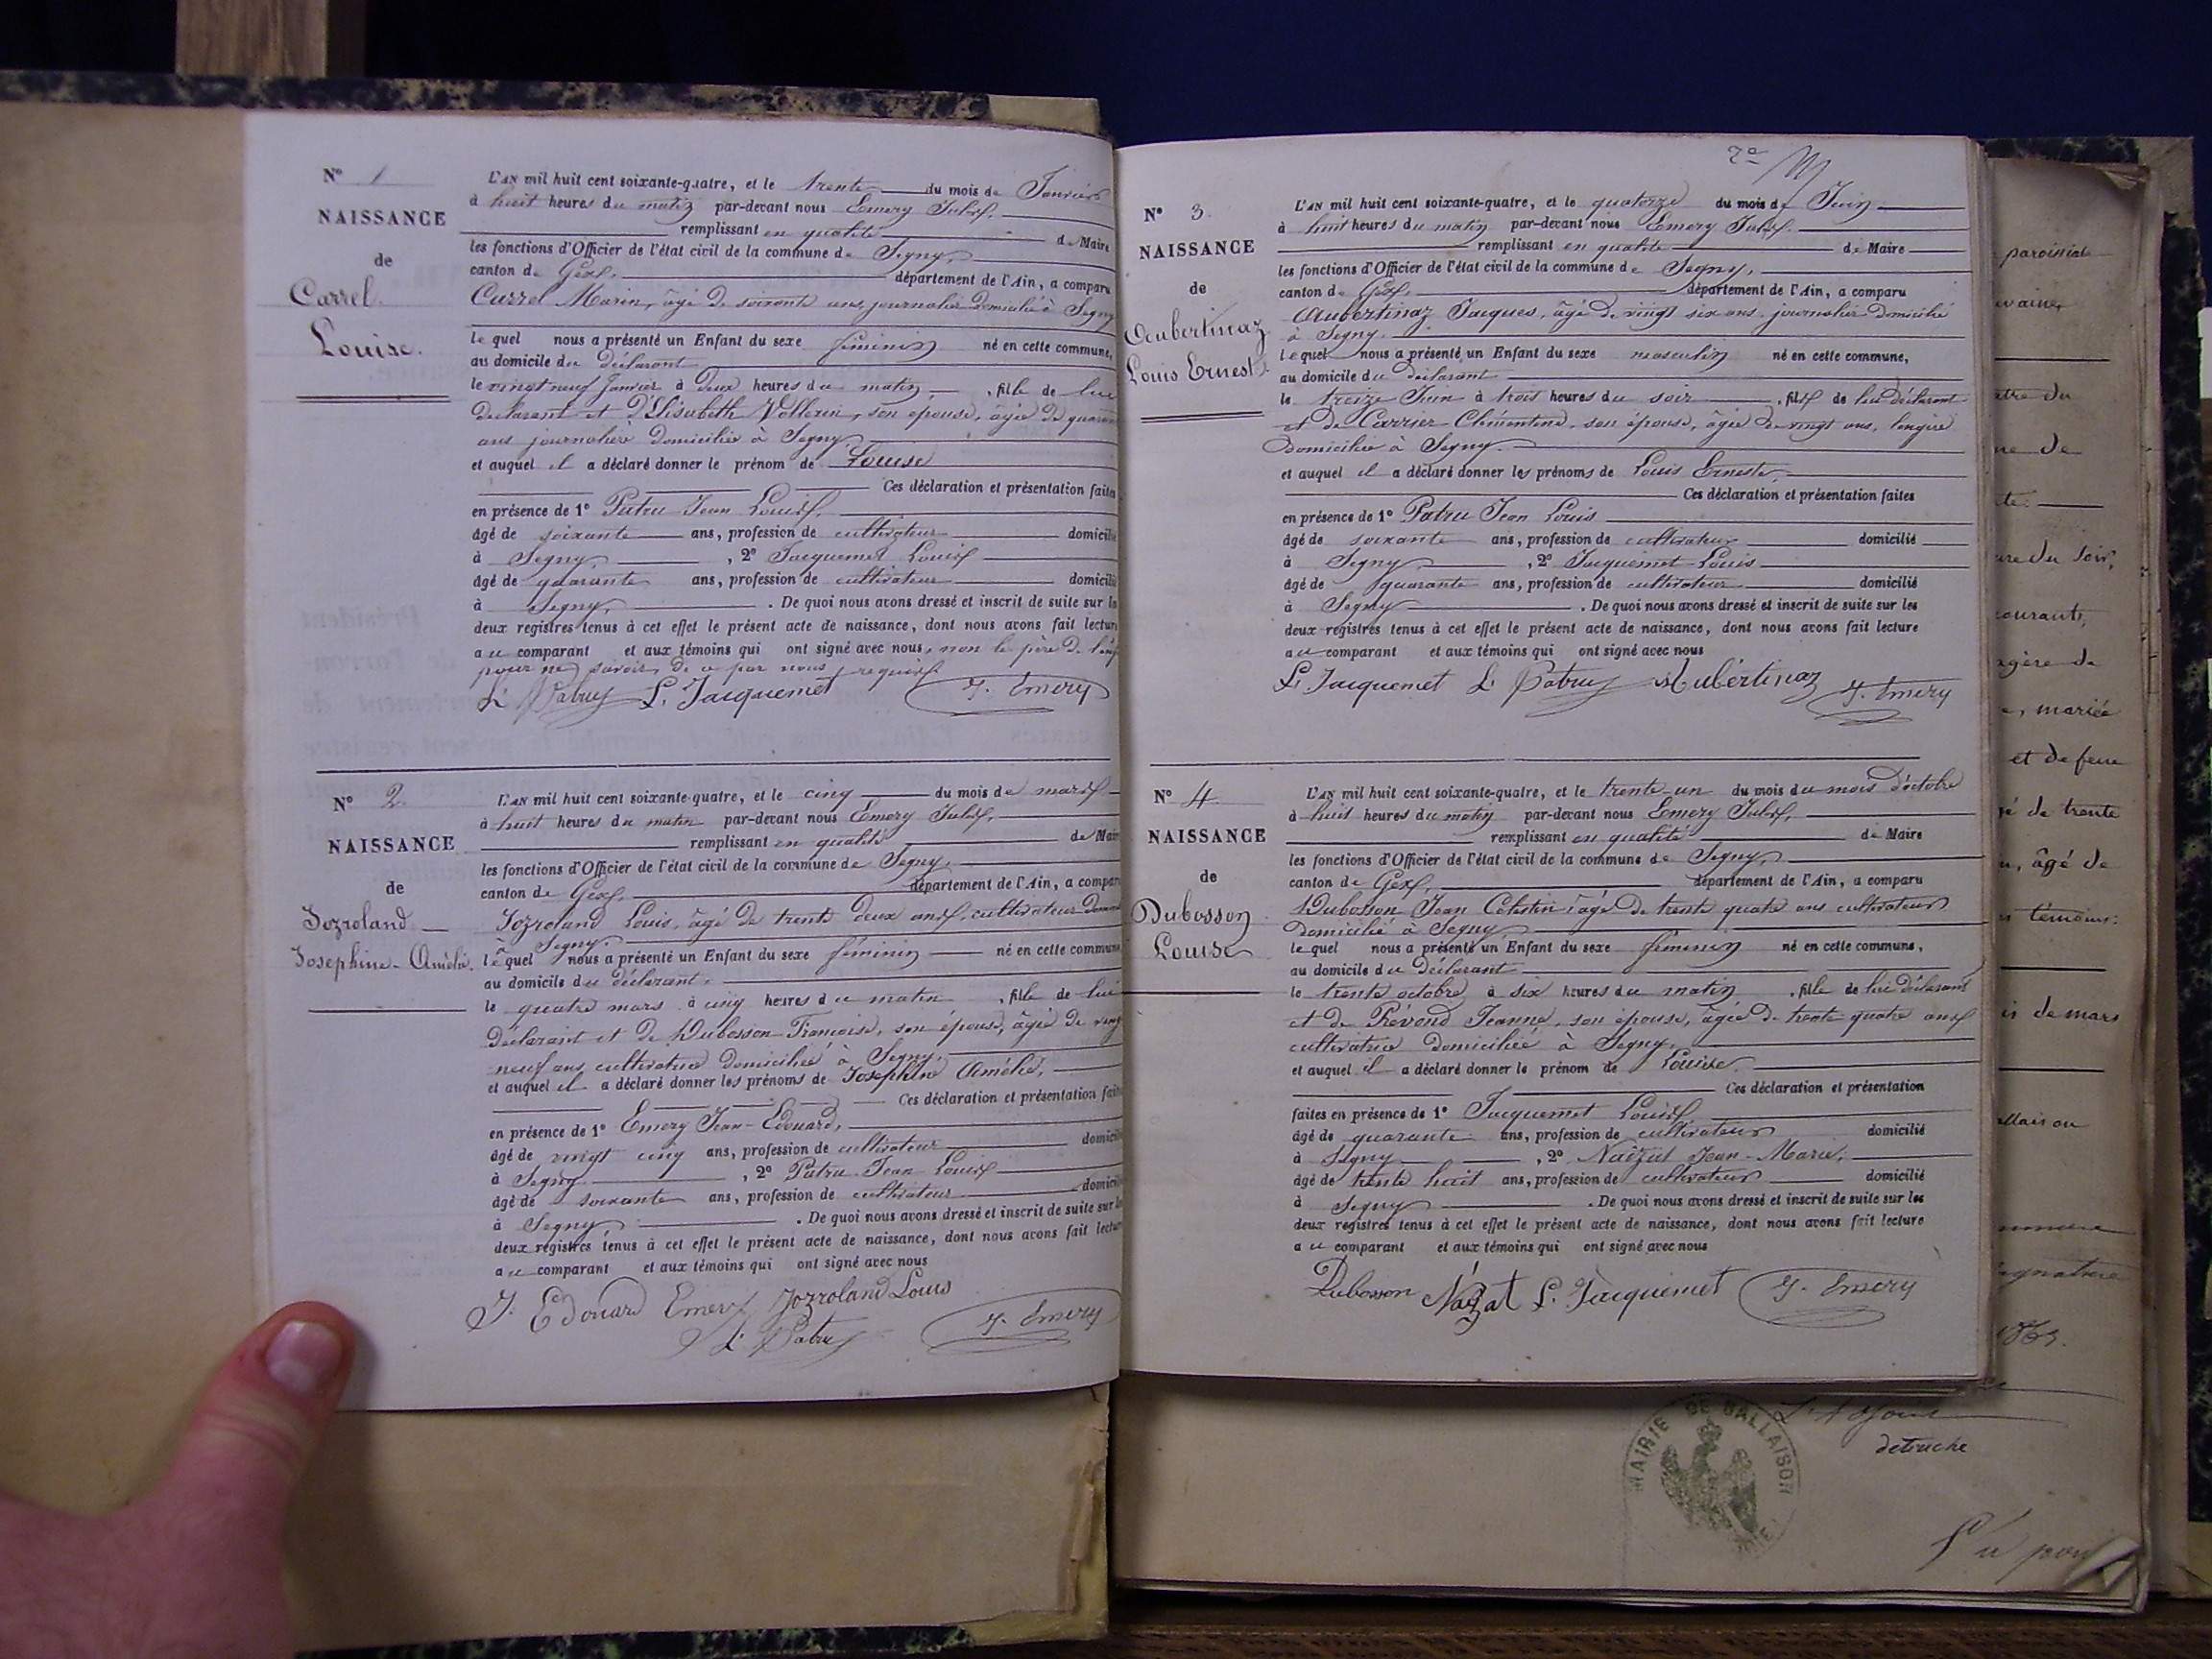 Nº 1
NAISSANCE
de
Carrel
Louise.
L'AN mil huit cent soixante-quatre, et le trente du mois de Janvier
à huit heures du matin par-devant nous Emery Jules,
remplissant en qualité de Maire
les fonctions d'Officier de l'état civil de la commune de Segny,
canton de Gex, département de l'Ain, a comparu
Carrel Marin, âgé de soixante ans, journalier domicilié à Segny
le quel nous a présenté un Enfant du sexe féminin né en cette commune,
au domicile du déclarant
le vingt neuf Janvier à deux heures du matin, fille de lui
déclarant et d'Elisabeth Vollerin, son épouse, âgée de quarante
ans journalière domiciliée à Segny,
et auquel il a déclaré donner le prénom de Louise
Ces déclaration et présentation faites
en présence de 1º Patru Jean Louis,
âgé de soixante ans, profession de cultivateur domicilié
à Segny, , 2º Jacquemet Louis
âgé de quarante ans, profession de cultivateur domicilié
à Segny, . De quoi nous avons dressé et inscrit de suite sur les
deux registres tenus à cet effet le présent acte de naissance, dont nous avons fait lecture
au comparant et aux témoins qui ont signé avec nous, non le père de
pour ne savoir, de ce par nous requis
L. Patru L. Jacquemet J. Emery
Nº 2.
NAISSANCE
de
Jozroland
Josephine-Amélie.
L'AN mil huit cent soixante-quatre, et le cinq du mois de mars
à huit heures du matin par-devant nous Emery Jules,
remplissant en qualité de Maire
les fonctions d'Officier de l'état civil de la commune de Segny,
canton de Gex, département de l'Ain, a comparu
Jozroland Louis, âgé de trente deux ans, cultivateur
à Segny.
lequel nous a présenté un Enfant du sexe féminin né en cette commune
au domicile du déclarant,
le quatre mars à cinq heures du matin , fille de lui
déclarant et de Dubosson Françoise, son épouse, âgée de vingt
neuf ans, cultivatrice domiciliée à Segny,
et auquel il a déclaré donner les prénoms de Josephine Amélie,
Ces déclaration et présentation faites
en présence de 1º Emery Jean-Edouard,
âgé de vingt cinq ans, profession de cultivateur domicilié
à Segny , 2º Patru Jean Louis
âgé de soixante ans, profession de cultivateur domicilié
à Segny, . De quoi nous avons dressé et inscrit de suite sur les
deux registres tenus à cet effet le présent acte de naissance, dont nous avons fait lecture
au comparant et aux témoins qui ont signé avec nous
J. Edouard Emery Jozroland Louis
L. Patru J. Emery
Nº 3.
NAISSANCE
de
Aubertinaz
Louis Ernest
L'AN mil huit cent soixante-quatre, et le quatorze du mois de Juin
à huit heures du matin par-devant nous Emery Jules.
remplissant en qualité de Maire
les fonctions d'Officier de l'état civil de la commune de Segny,
canton de Gex, département de l'Ain, a comparu
Aubertinaz Jacques, âgé de vingt six ans, journalier domicilié
à Segny.
lequel nous a présenté un Enfant du sexe masculin né en cette commune,
au domicile du déclarant
le treize Juin à trois heures du soir , fils de lui déclarant
et de Carrier Clémentine, son épouse, âgée de vingt ans, lingère
domiciliée à Segny.
et auquel il a déclaré donner les prénoms de Louis Erneste,
Ces déclaration et présentation faites
en présence de 1º Patru Jean Louis
âgé de soixante ans, profession de cultivateur domicilié
à Segny , 2º Jacquemet Louis
âgé de quarante ans, profession de cultivateur domicilié
à Segny . De quoi nous avons dressé et inscrit de suite sur les
deux registres tenus à cet effet le présent acte de naissance, dont nous avons fait lecture
au comparant et aux témoins qui ont signé avec nous
L. Jacquemet L. Patru Aubértinaz J. Emery
Nº 4.
NAISSANCE
de
Dubosson
Louise
L'AN mil huit cent soixante-quatre, et le trente-un du mois du mois d'octobre
à huit heures du matin par-devant nous Emery Jules,
remplissant en qualité de Maire
les fonctions d'Officier de l'état civil de la commune de Segny,
canton de Gex, département de l'Ain, a comparu
Dubosson Jean Célestin âgé de trente quatre ans cultivateur
domicilié à Segny
le quel nous a présenté un Enfant du sexe féminin né en cette commune,
au domicile du déclarant
le trente octobre à six heures du matin , fille de lui déclarant
et de Prévond Jeanne, son épouse, âgée de trente quatre ans
cultivatrice domiciliée à Segny,
et auquel il a déclaré donner le prénom de Louise.
Ces déclaration et présentation
faites en présence de 1º Jacquemet Louis
âgé de quarante ans, profession de cultivateur domicilié
à Segny , 2º Naëzat Jean-Marie,
âgé de trente huit ans, profession de cultivateur domicilié
à Segny . De quoi nous avons dressé et inscrit de suite sur les
deux registres tenus à cet effet le présent acte de naissance, dont nous avons fait lecture
au comparant et aux témoins qui ont signé avec nous
Dubosson L. Jacquemet J. Emery
paroissial
de
ure du soir,
courants,
agère de
mariée
et de feue
gé de trente
âgé de
témoins:
de mars
MAIRIE DE BALLAISON
detruche